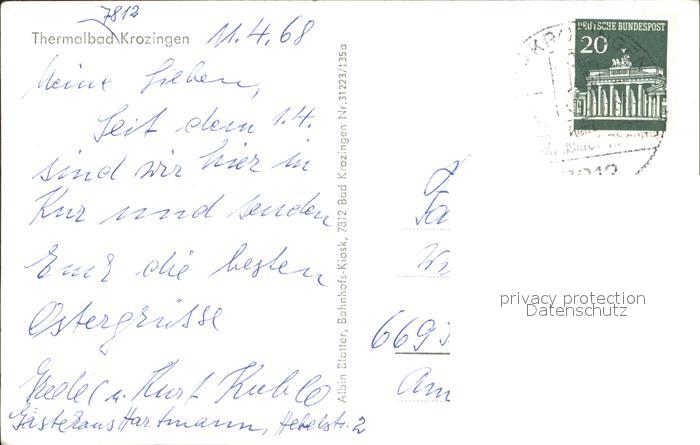 7812
Thermalbad Krozingen 11.4.68
Meine Lieben,
Seit dem 1.4.
sind wir hier in
Kur und senden
Euch die besten
Ostergrüsse
u. Kurt
Gästehaus Hartmann, Hebelstr. 2
Albin Blatter, Bahnhofs-Kiosk, 7812 Bad Krozingen Nr. 31223/135a
DEUTSCHE BUNDESPOST
20
7812
Fa
669
Am
privacy protection
Datenschutz